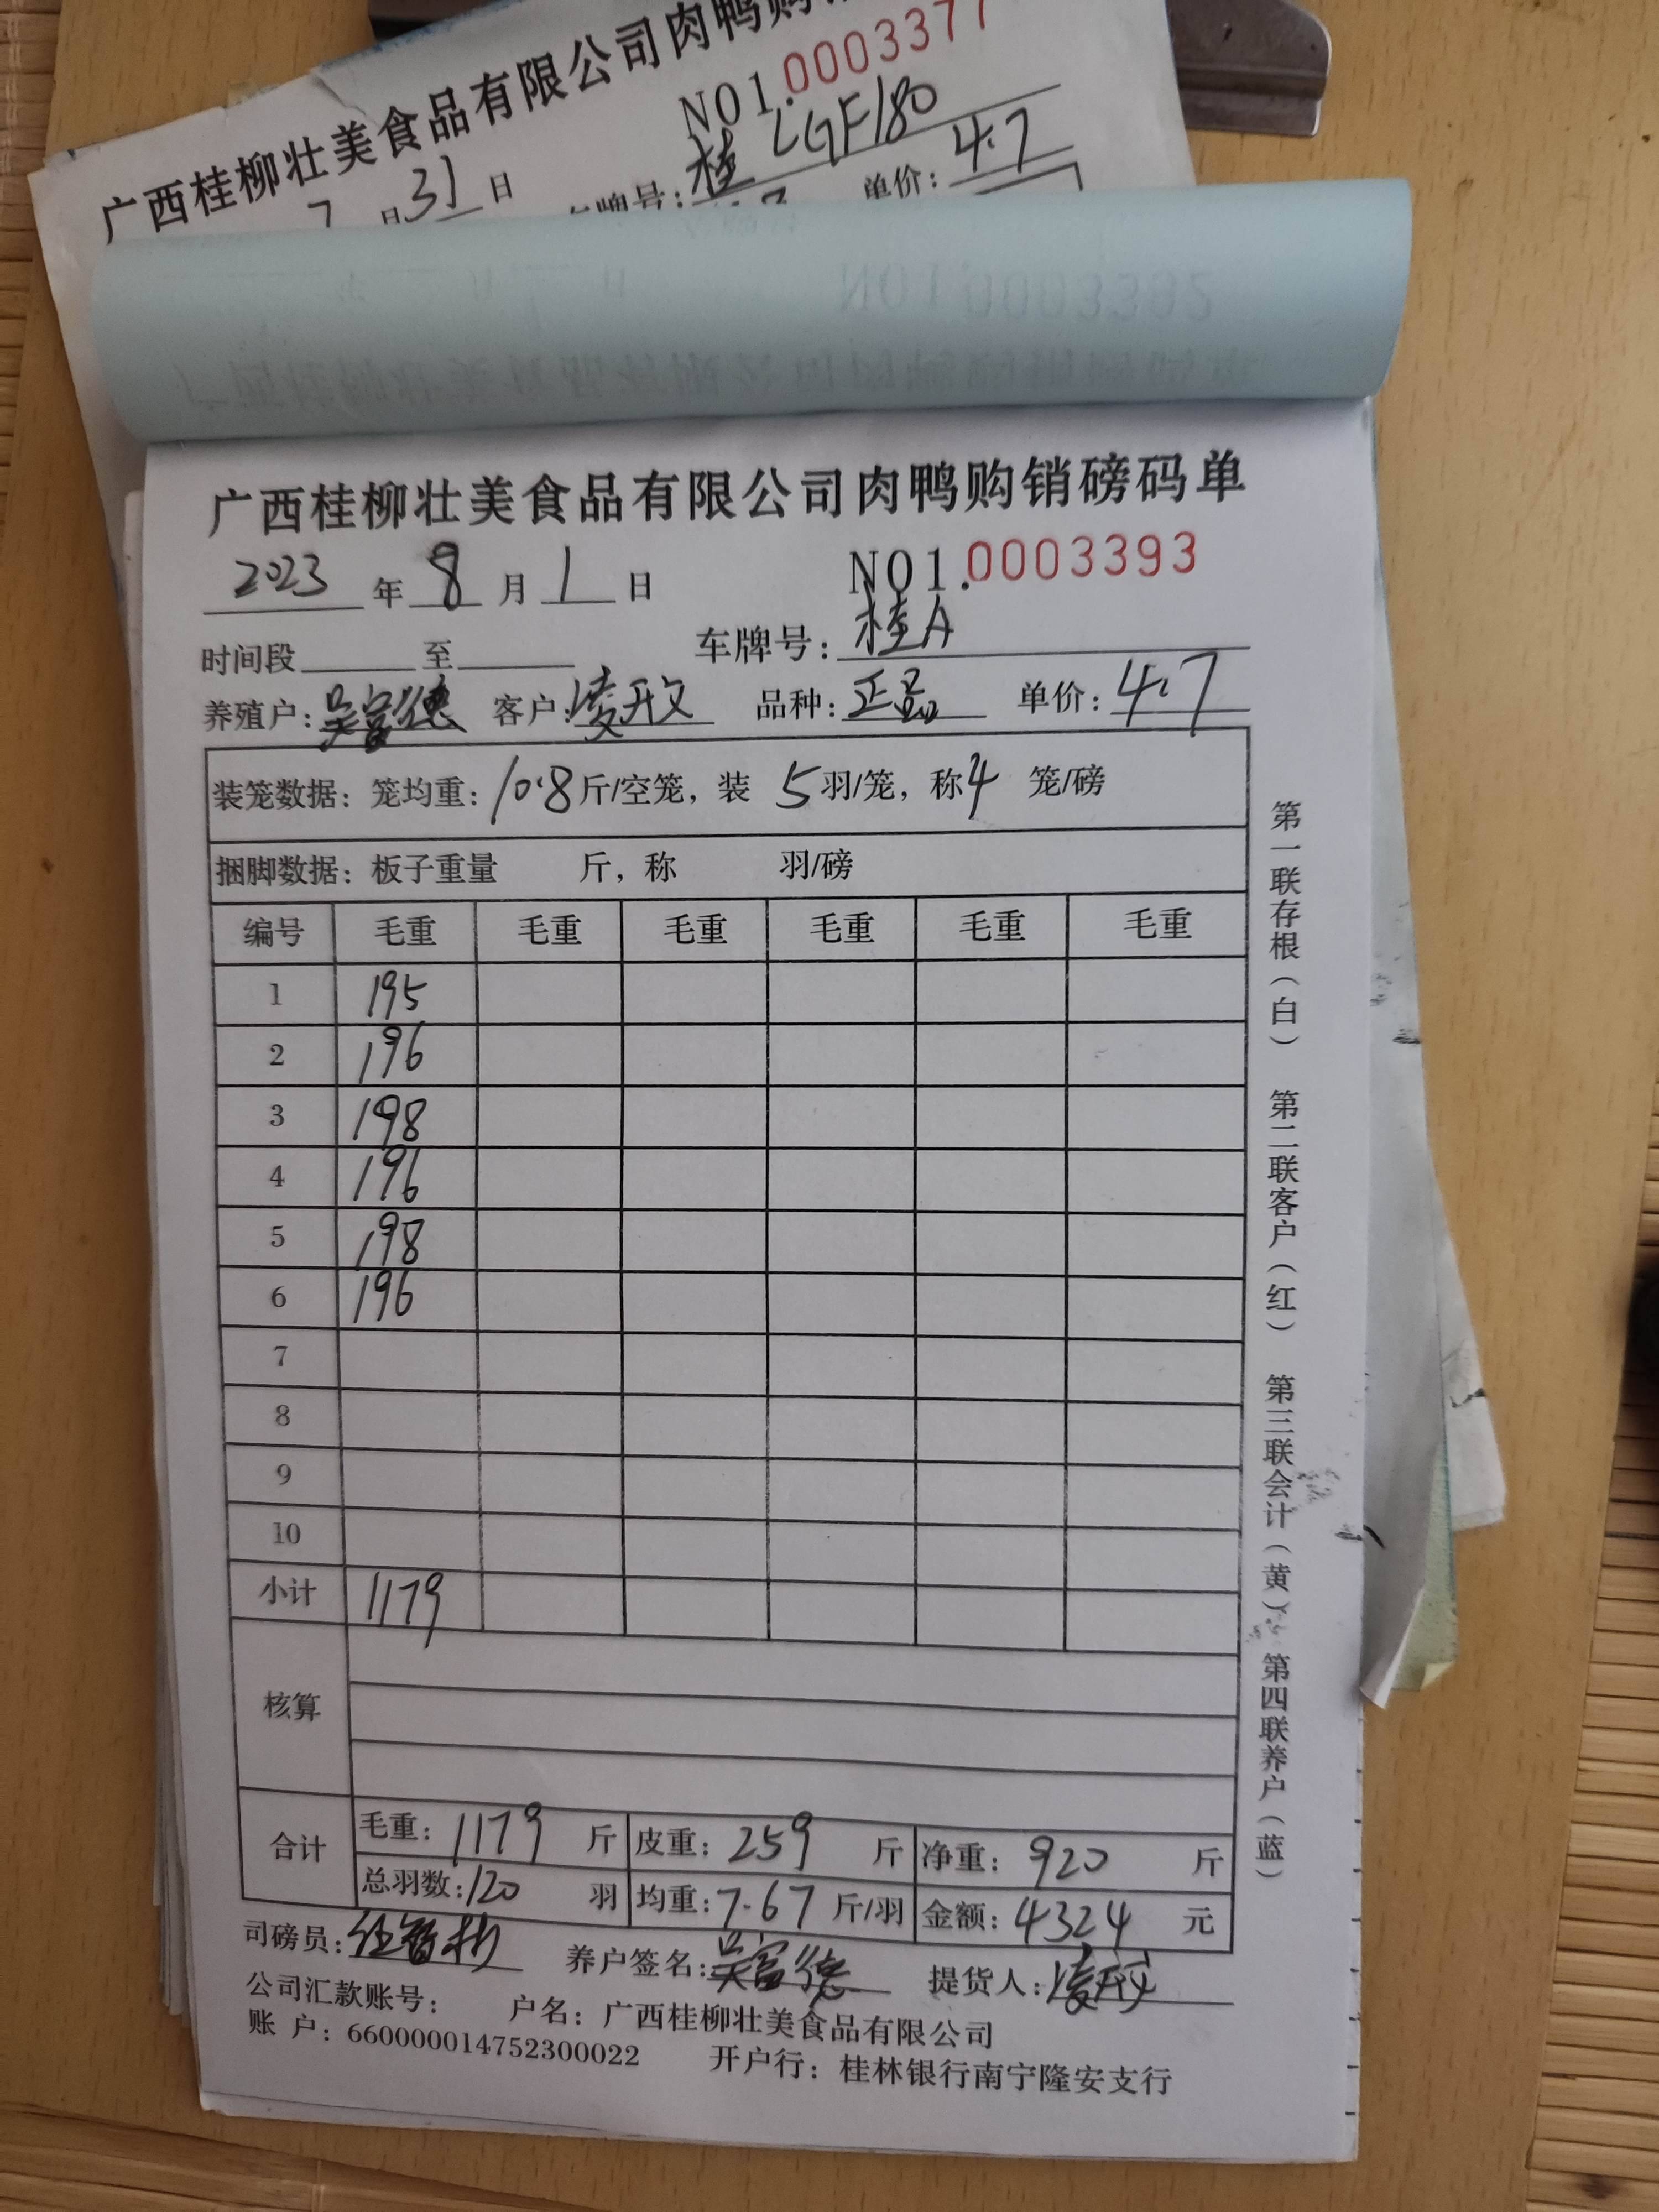 广西桂柳壮美食品有限公司肉鸭购
NO1.0003377
7 月 31 日 车牌号: 桂 LGF180
单价: 4.7
NO1.0003392
广西桂柳壮美食品有限公司肉鸭购销磅码单
2023 年 8 月 1 日 NO1.0003393
时间段 至 车牌号: 桂A
养殖户: 吴富德 客户: 品种: 正品 单价: 4.7
装笼数据: 笼均重: 10.8 斤/空笼, 装 5 羽/笼, 称 4 笼/磅
捆脚数据: 板子重量 斤, 称 羽/磅
编号 毛重 毛重 毛重 毛重 毛重 毛重
1 195
2 196
3 198
4 196
5 198
6 196
7
8
9
10
小计 1179
核算
合计 毛重: 1179 斤 皮重: 259 斤 净重: 920 斤
总羽数: 120 羽 均重: 7.67 斤/羽 金额: 4324 元
司磅员: 养户签名: 吴富德 提货人:
公司汇款账号: 户名: 广西桂柳壮美食品有限公司
账 户: 660000014752300022 开户行: 桂林银行南宁隆安支行
第一联存根(白) 第二联客户(红) 第三联会计(黄) 第四联养户(蓝)